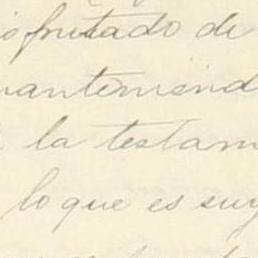 isfrutado de
manteniend
la testam
lo que es suy